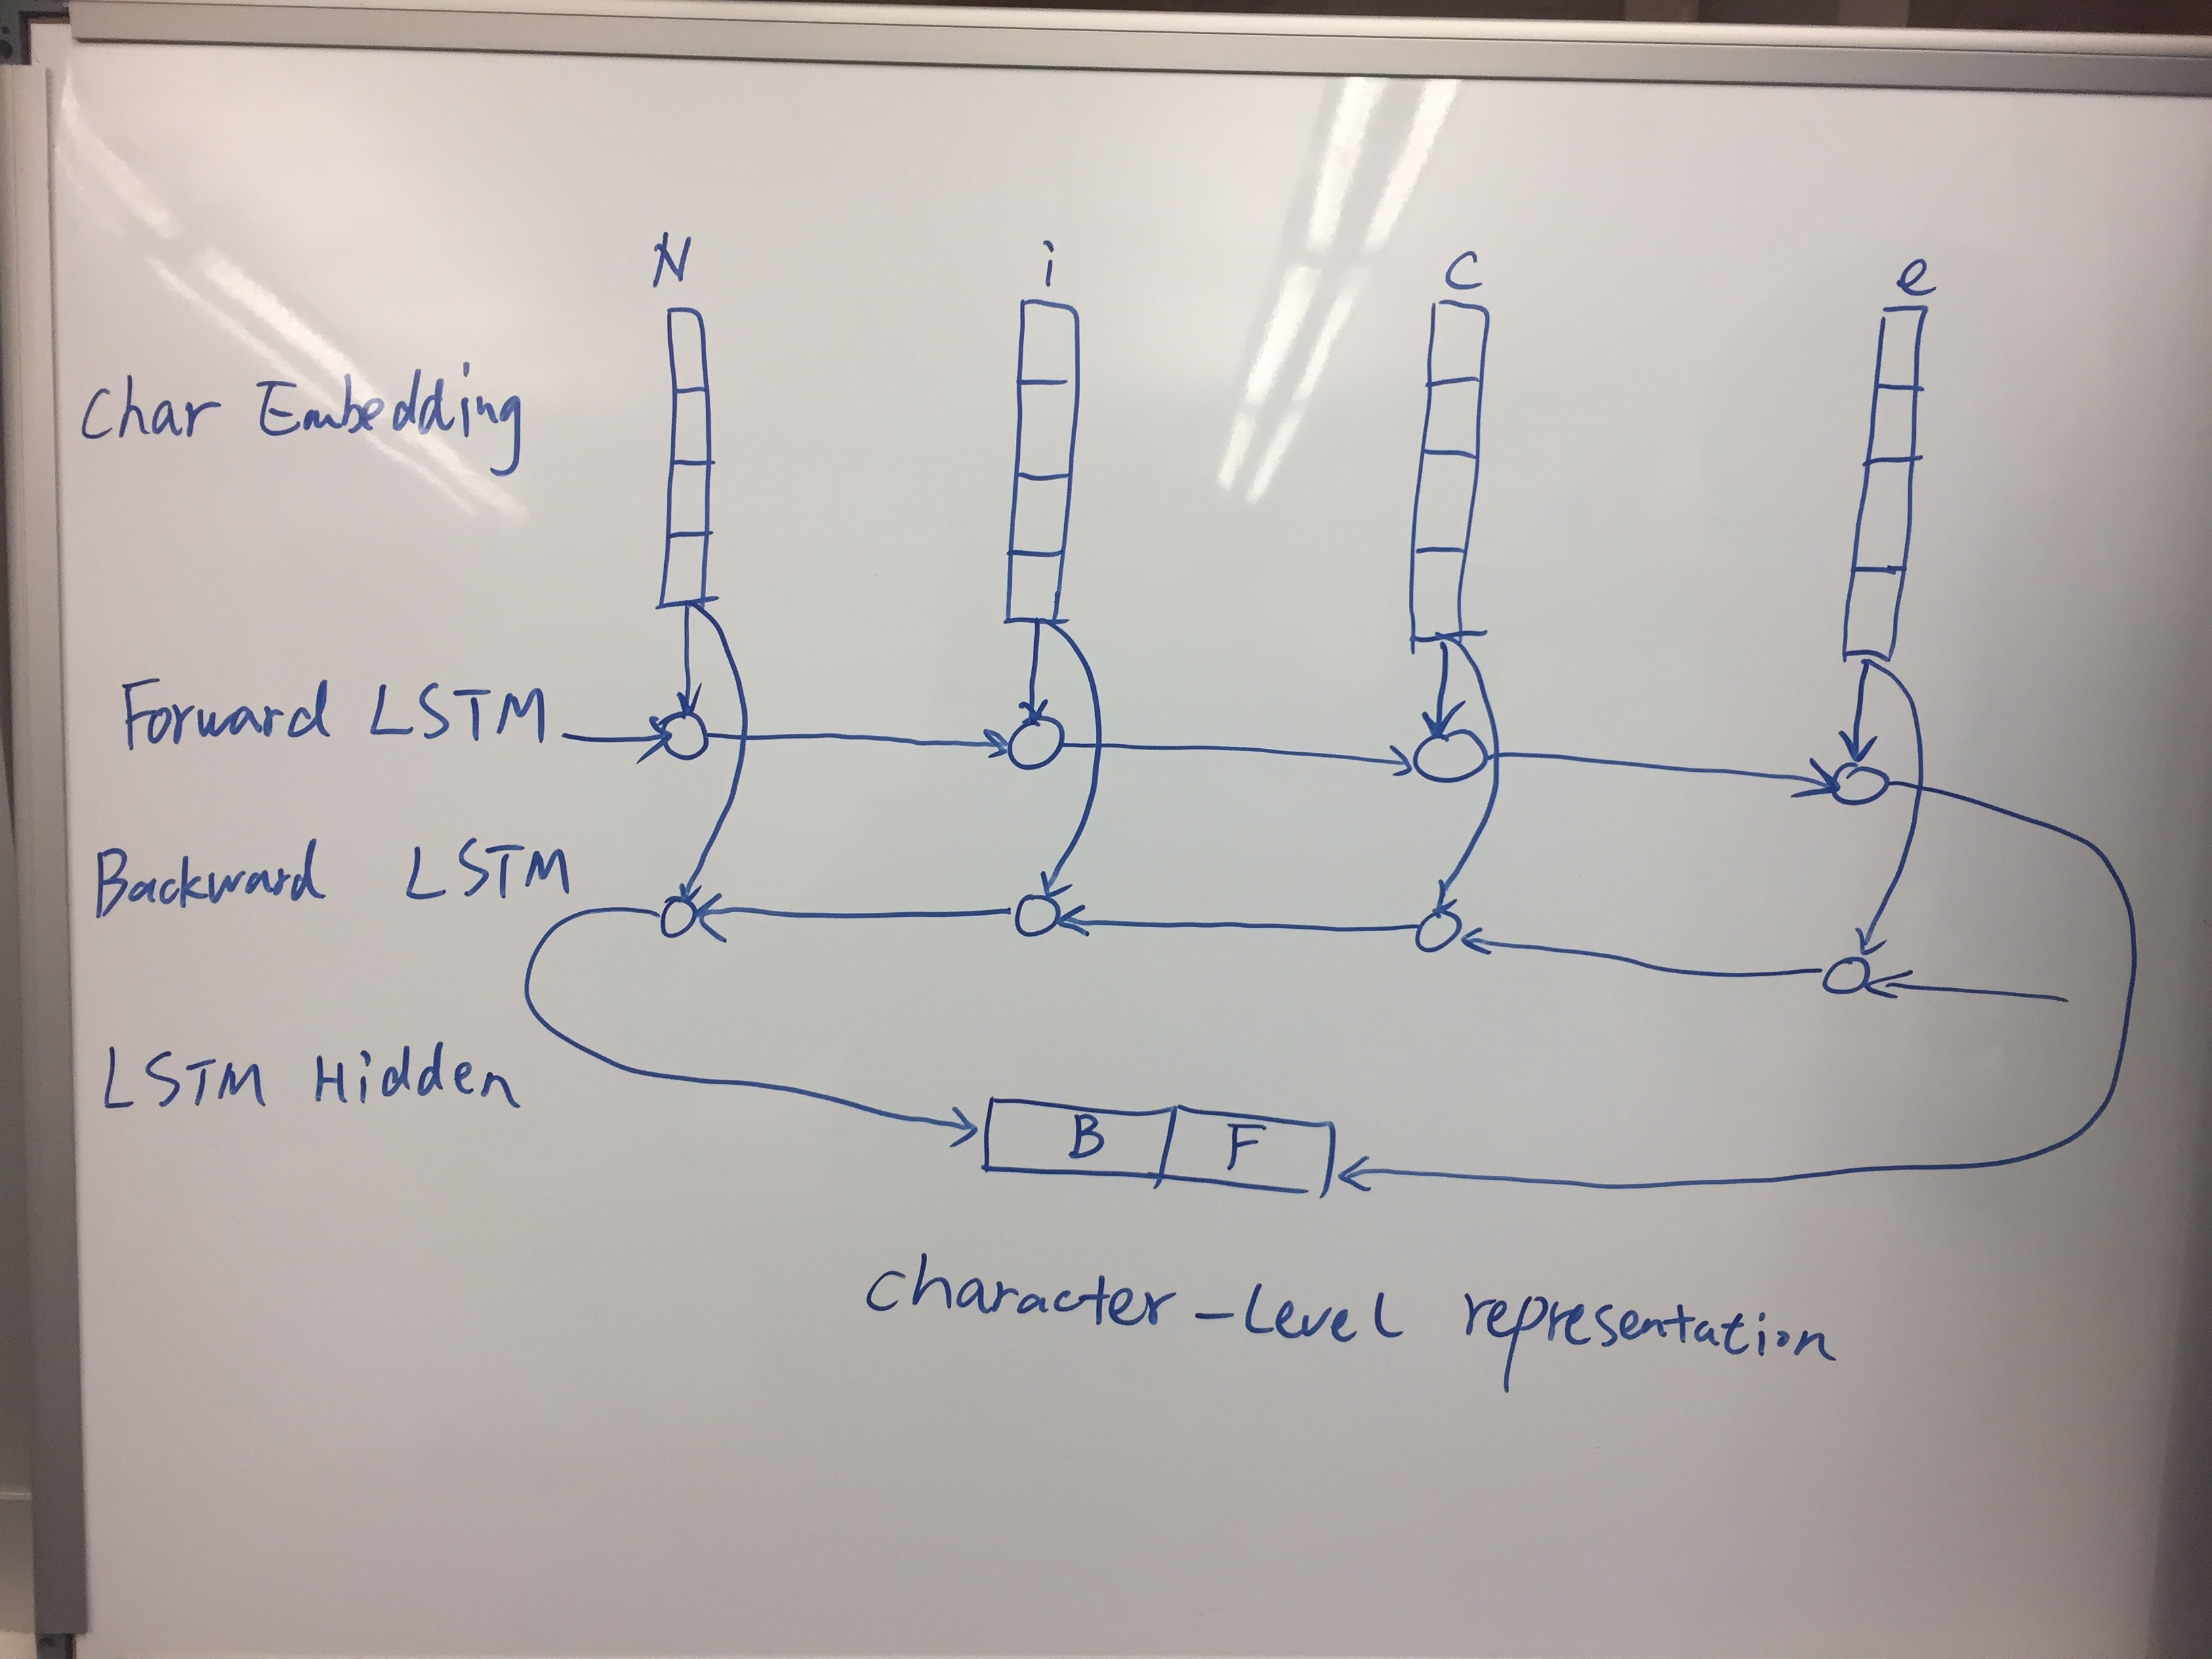 N i c e
Char Embedding
Forward LSTM
Backward LSTM
LSTM Hidden
B F
Character-Level representation